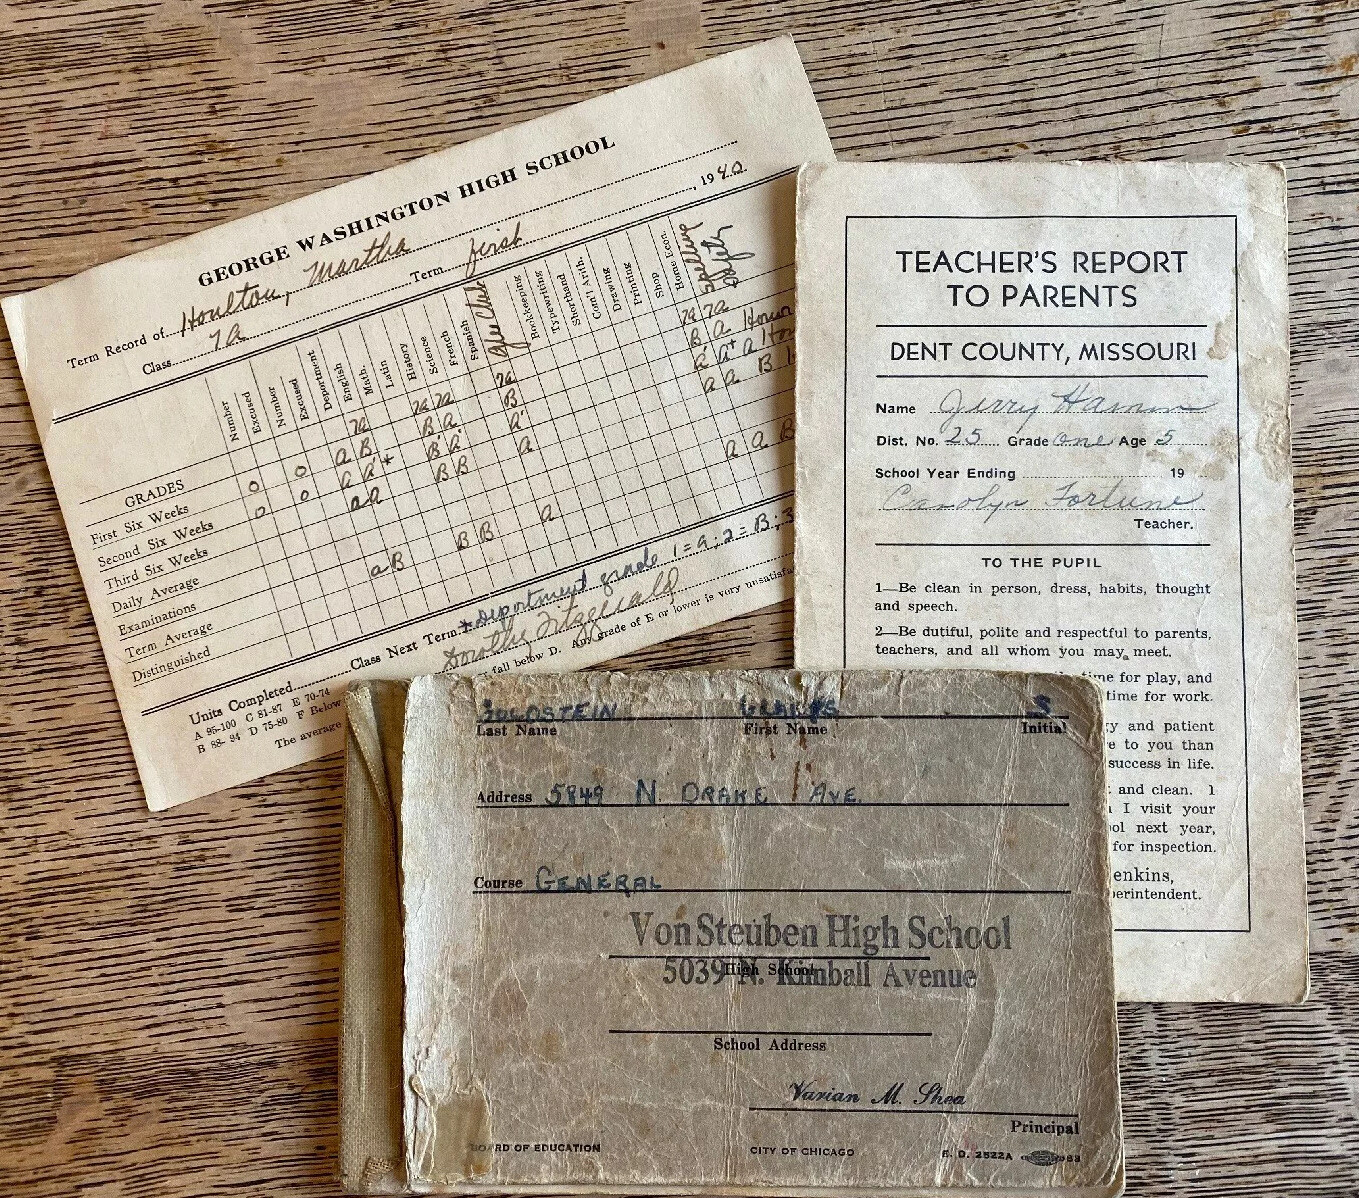 GEORGE WASHINGTON HIGH SCHOOL
Term Record of Houlton, Martha
Class 7a Term first, 1940
Number
Excused
Number
Excused
Department
English
Math.
Latin
History
Science
French
Spanish
Glee Club
Bookkeeping
Typewriting
Shorthand
Com'l Arith.
Drawing
Printing
Shop
Home Econ.
Spelling
GRADES 7a 7a 7a 7a 7a 7a
First Six Weeks 0 0 a B B a B B a Honor
Second Six Weeks 0 0 a a * B a a a a
Third Six Weeks a a B B a a a B
Daily Average
Examinations
Term Average a B B B a a a B
Distinguished
Units Completed Class Next Term
* Department grade 1=a; 2=B; 3
Dorothy Fitzgerald
A 95-100 C 81-87 E 70-74
B 88-94 D 75-80 F Below
fall below D. Any grade of E or lower is very unsatisfa
The average
TEACHER'S REPORT
TO PARENTS
DENT COUNTY, MISSOURI
Name Jerry
Dist. No. 25 Grade one Age 5
School Year Ending 19
Carolyn Fortune
Teacher.
TO THE PUPIL
1—Be clean in person, dress, habits, thought
and speech.
2—Be dutiful, polite and respectful to parents,
teachers, and all whom you may meet.
time for play, and
time for work.
and patient
e to you than
success in life.
and clean. I
I visit your
ol next year,
for inspection.
enkins,
erintendent.
GOLDSTEIN GLADYS S
Last Name First Name Initial
Address 5849 N. DRAKE AVE.
Course GENERAL
Von Steuben High School
High School
5039 N. Kimball Avenue
School Address
Varian M. Shea
Principal
BOARD OF EDUCATION CITY OF CHICAGO E. D. 2522A